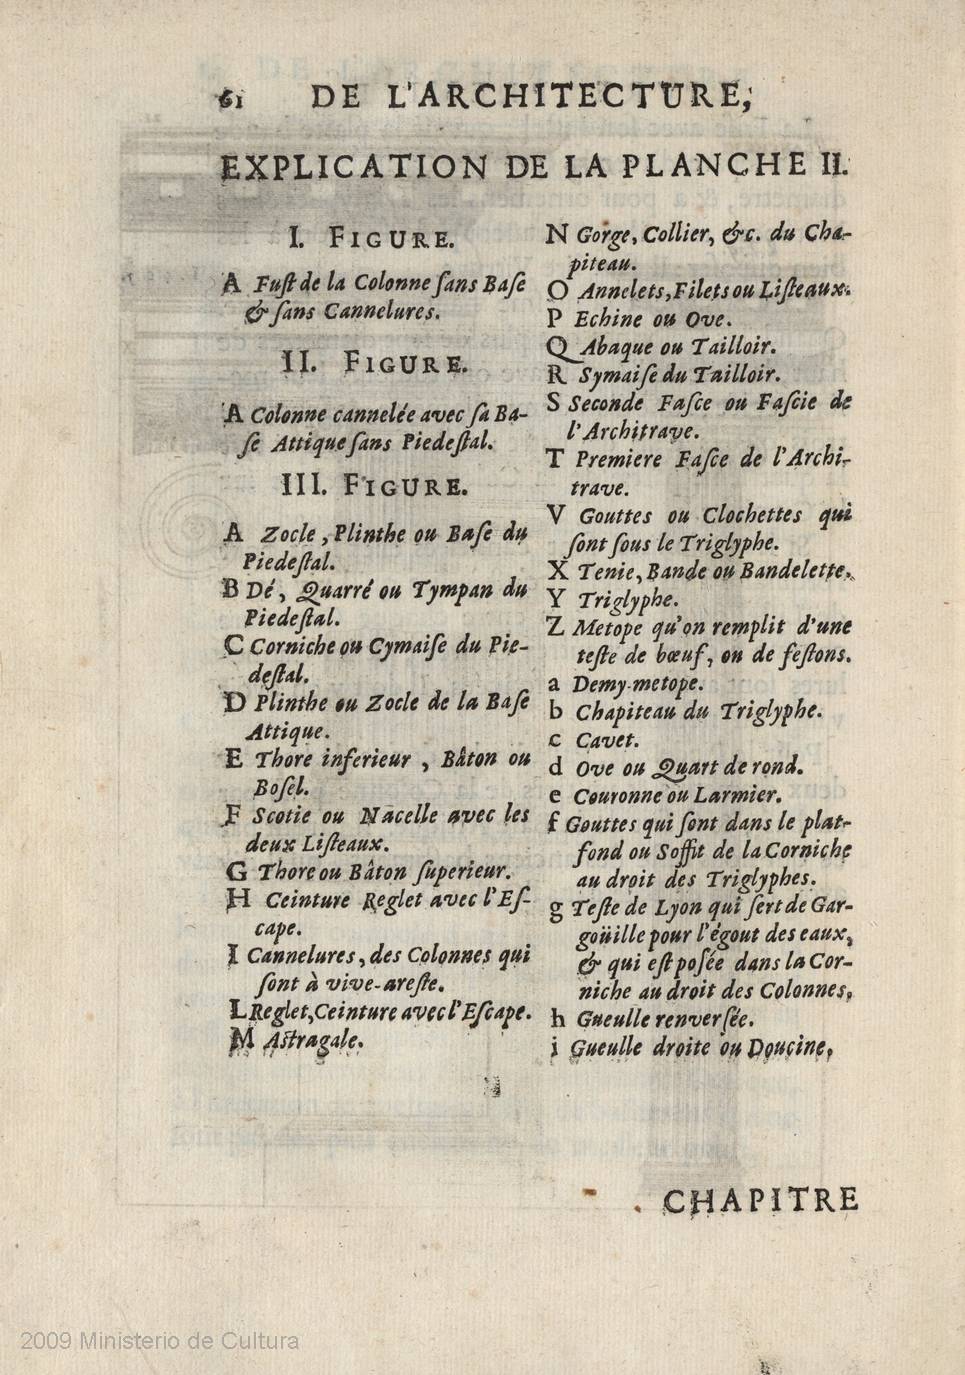 61 DE L'ARCHITECTURE,
EXPLICATION DE LA PLANCHE II.
I. FIGURE.
A Fuſt de la Colonne ſans Baſe
& ſans Cannelures.
II. FIGURE.
A Colonne cannelée avec ſa Ba-
ſe Attique ſans Piedeſtal.
III. FIGURE.
A Zocle, Plinthe ou Baſe du
Piedeſtal.
B Dé, Quarré ou Tympan du
Piedeſtal.
C Corniche ou Cymaiſe du Pie-
deſtal.
D Plinthe ou Zocle de la Baſe
Attique.
E Thore inferieur , Bâton ou
Boſel.
F Scotie ou Nacelle avec les
deux Liſteaux.
G Thore ou Bâton ſuperieur.
H Ceinture Reglet avec l'Eſ-
cape.
I Cannelures, des Colonnes qui
ſont à vive-areſte.
L Reglet, Ceinture avec l'Eſcape.
M Aſtragale.
N Gorge, Collier, &c. du Cha-
piteau.
O Annelets, Filets ou Liſteaux.
P Echine ou Ove.
Q Abaque ou Tailloir.
R Symaiſe du Tailloir.
S Seconde Faſce ou Faſcie de
l'Architrave.
T Premiere Faſce de l'Archi-
trave.
V Gouttes ou Clochettes qui
ſont ſous le Triglyphe.
X Tenie, Bande ou Bandelette.
Y Triglyphe.
Z Metope qu'on remplit d'une
teſte de bœuf, ou de feſtons.
a Demy-metope.
b Chapiteau du Triglyphe.
c Cavet.
d Ove ou Quart de rond.
e Couronne ou Larmier.
f Gouttes qui ſont dans le plat-
fond ou Soffit de la Corniche
au droit des Triglyphes.
g Teſte de Lyon qui ſert de Gar-
goüille pour l'égout des eaux,
& qui eſt poſée dans la Cor-
niche au droit des Colonnes,
h Gueulle renverſée.
i Gueulle droite ou Doucine,
CHAPITRE
2009 Ministerio de Cultura